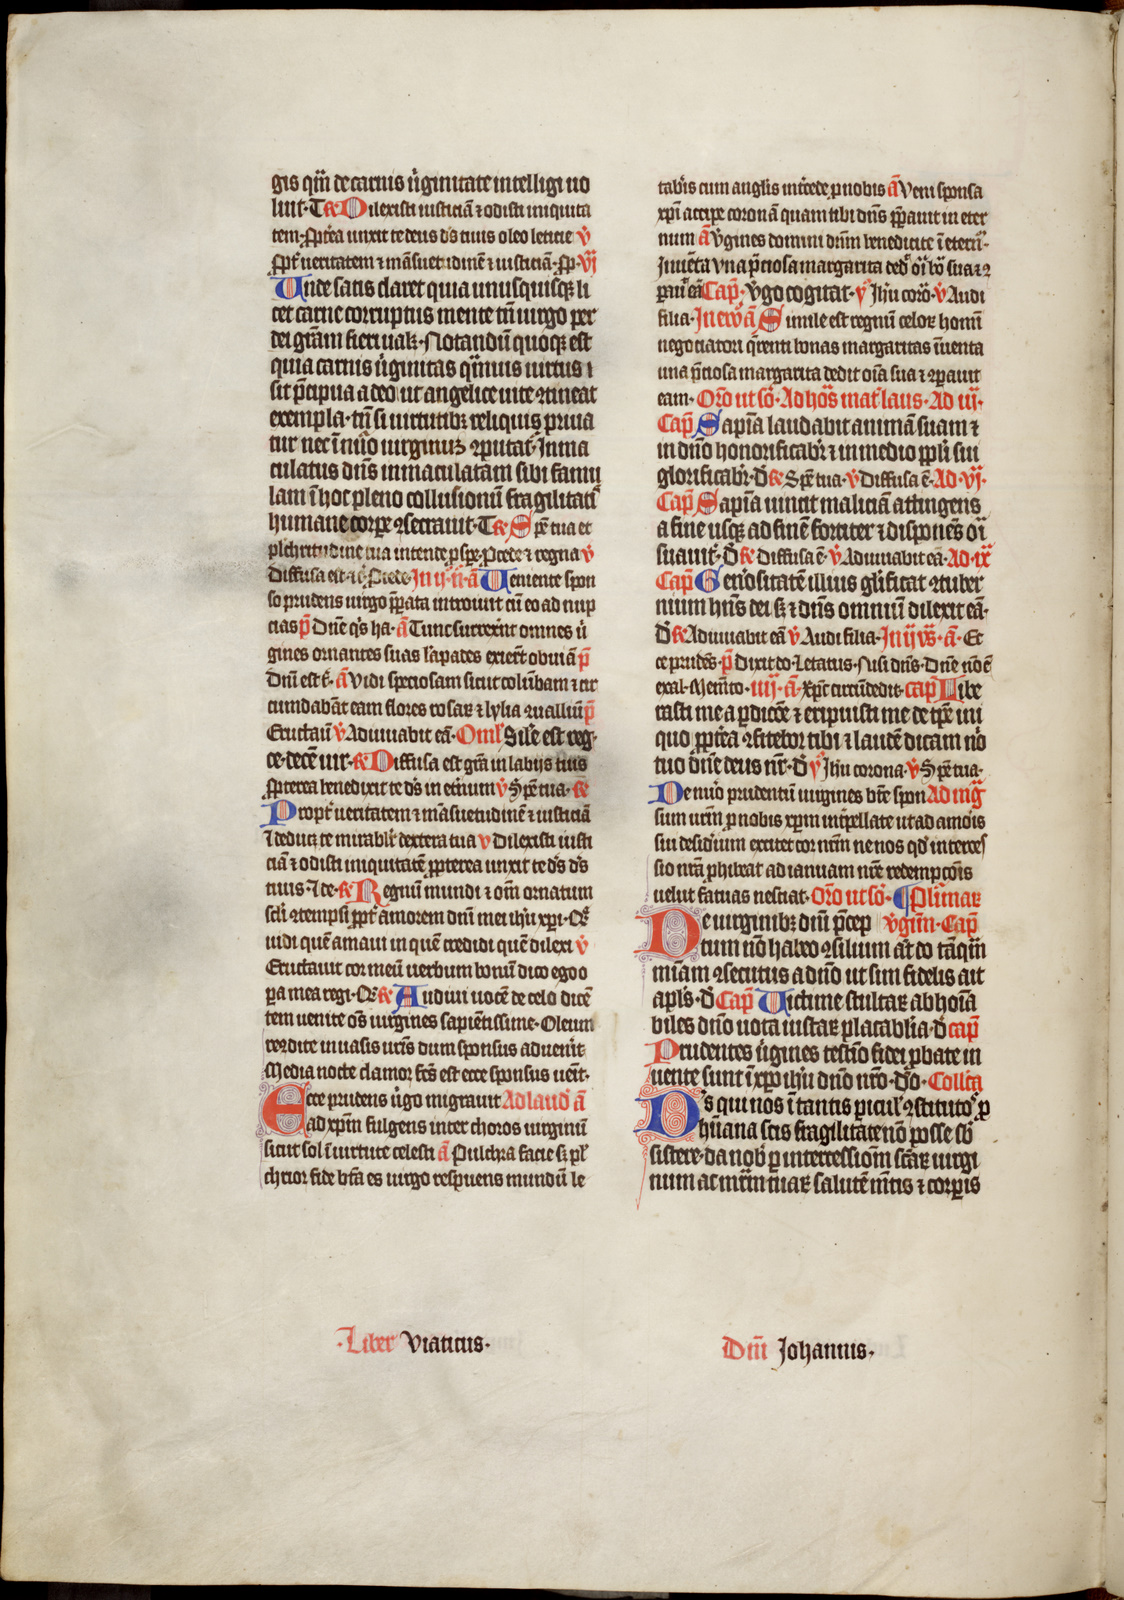 gis qm̄ de carnis ũginitate intelligi uo
luit· T ℟ Dilexisti iusticiā ⁊ odisti iniquita
tem· ꝓpt̄ea unxit te deus ds̄ tuus oleo leticie ℣
ꝓpt̄ ueritatem ⁊ mā̄suetudinē ⁊ iusticiā· ꝓp· VI
Unde satis claret quia unusquisq̨ li
cet carne corruptus mente tn̄ uirgo per
dei gr̄am fieri ualꝫ· Notandū quoq̨ est
quia carnis ũginitas qm̄uis uirtus
sit p̄cipua adeo ut angelice uite ꝯtineat
exempla· tn̄ si uirtutibꝫ reliquis priua
tur nec ī nūo uirginuꝫ ꝯputat᷑· Inma
culatus dn̄s inmaculatam sibi famu
lam ī hoc pleno collusionū fragilitati
humane corpe ꝯsecrauit· T ℟ Spē tua et
plchritudine tua intende ꝓspe· Pcede ⁊ regna ℣
Diffusa est· Pcede· In ij· n̄· ā Ueniente spon
so prudens uirgo p̄parata introiuit cū eo ad nup
cias p̄ Dn̄e qs̄ ha· ā Tunc surrexer̄t omnes ũ
gines ornantes suas lāpades exierūt obuiā p̄
Dn̄i est t̄· ā Vidi speciosam sicut colūbam ⁊ cir
cumdabāt eam flores rosaꝝ ⁊ lylia ꝯualliū p̄
Eructauī ℣ Adiuuabit eā· Oml̄ Sil̄e est reg·
ce· decē uir· ℟ Diffusa est gr̄a in labijs tuis
ꝓpterea benedixit te ds̄ in et̄num ℣ Spē tua· ℟
Propt᷑ ueritatem ⁊ mā̄suetudinē ⁊ iusticiā
⁊ deduc᷑ te mirabil᷑ dextera tua ℣ Dilexisti iusti
ciā ⁊ odisti iniquitatē ꝓpterea unxit te ds̄ ds̄
tuus· ⁊ de· ℟ Regnū mundi ⁊ om̄ ornatum
scl̄i ꝯtempsi ꝓpt᷑ amorem dn̄i mei ihū xp̄i· Qē
uidi quē amaui in quē credidi quē dilexi ℣
Eructauit cor meū uerbum bonū dico ego o
pa mea regi· Qē ℟ Audiui uocē de celo dicē
tem uenite om̄s uirgines sapiētissime· Oleum
recondite in uasis ur̄is dum sponsus aduen̄it
Media nocte clamor fcs̄ est ecce sponsus uēit·
Ecce prudens ũgo migrauit Ad laud̄ ā
ad xp̄m fulgens inter choros uirginū
sicut sol ī uirtute celesti ā Pulchra facie sꝫ pl᷑
chrior fide bt̄a es uirgo respuens mundū le
tab̄is cum anglis int̄cede ꝓ nobis ā Veni sponsa
xp̄i accipe coronā quam tibi dn̄s p̄pauit in eter
num ā ṽgines domini dn̄m benedicite ī et̄nū·
Inuēta vna p̄ciosa margarita ded᷑ oīa sua ⁊ ꝯ
pauī eā Cap̄· ṽgo cogitat· ℣ Ihū corō· ℣ Audi
filia· In ew̄ ā Simile est regnū celoꝝ homī
negociatori q̄renti bonas margaritas īuenta
una p̄ciosa margarita dedit oīa sua ⁊ ꝯpauit
eam· Orō ut sō· Ad hōs mat̄ laus· Ad iij·
Cap̄ Sapīa laudabit animā suam ⁊
in dn̄o honorificab̄r ⁊ in medio ppl̄i sui
glorificab̄r· D̄ ℟ Spē tua· ℣ Diffusa ē· Ad· VI·
Cap̄ Sapīa uincit maliciā attingens
a fine usq̨ ad finē fortiter ⁊ disponēs oīa
suauit᷑· D̄ ℟ Diffusa ē· ℣ Adiuuabit eā· Ad· ix
Cap̄ Gen̄ositatē illius gl̄ificat ꝯtuber
nium hn̄s dei sꝫ ⁊ dn̄s omniū dilexit eā·
D̄ ℟ Adiuuabit eā ℣ Audi filia· In ij ꝟs· ā· Ec
ce prudēs· p̄ Dixit do· Letatus· Nisi dn̄s· Dn̄e nō ē
exal· Memēto· iiij· ā· Xp̄c circūdedit· cap̄ Libe
rasti me a pdicōe ⁊ eripuisti me de tpe̅ ini
quo ꝓpt̄ea ꝯfitebor tibi ⁊ laudē dicam nōi
tuo dn̄e deus nr̄· D̄ ℣ Ihū corona· ℣ Spē tua·
De nūo prudentū uirgines bt̄e spon Ad mg̃
sum ur̄m ꝓ nobis xp̄m int̄pellate ut ad amōis
sui desid̄ium excitet cor nr̄m ne nos qd̄ int̄ces
sio nr̄a ꝓhibeat ad ianuam nr̄e redempcōis
uelut fatuas nesciat· Orō ut sō· ¶ Pl̄imaꝝ
De uirginibꝫ dn̄i p̄cep ṽgin̄· Cap̄
tum nō habeo ꝯsilium aūt do tāqm̄
mīam ꝯsecutus a dn̄o ut sim fidelis ait
apl̄s· D̄ Cap̄ Uictime stultaꝝ abhoīa
biles dn̄o uota iustaꝝ placabl̄ia· D̄ cap̄
Prudentes ũgines testīo fidei ꝓbate in
uente sunt ī xp̄o ihū dn̄o nr̄o· D̄o· Coll̄ca
Ds̄ qui nos ī tantis picul᷑ ꝯstituto᷑ ꝓ
hūana scis fragilitate nō posse sb̄
sistere· da nob᷑ p intercessiōm scāꝝ uirgi
num ac mr̄m tuaꝝ salutē mt̄is ⁊ corpis
·Liber Viaticus·
Dn̄i Johannis·